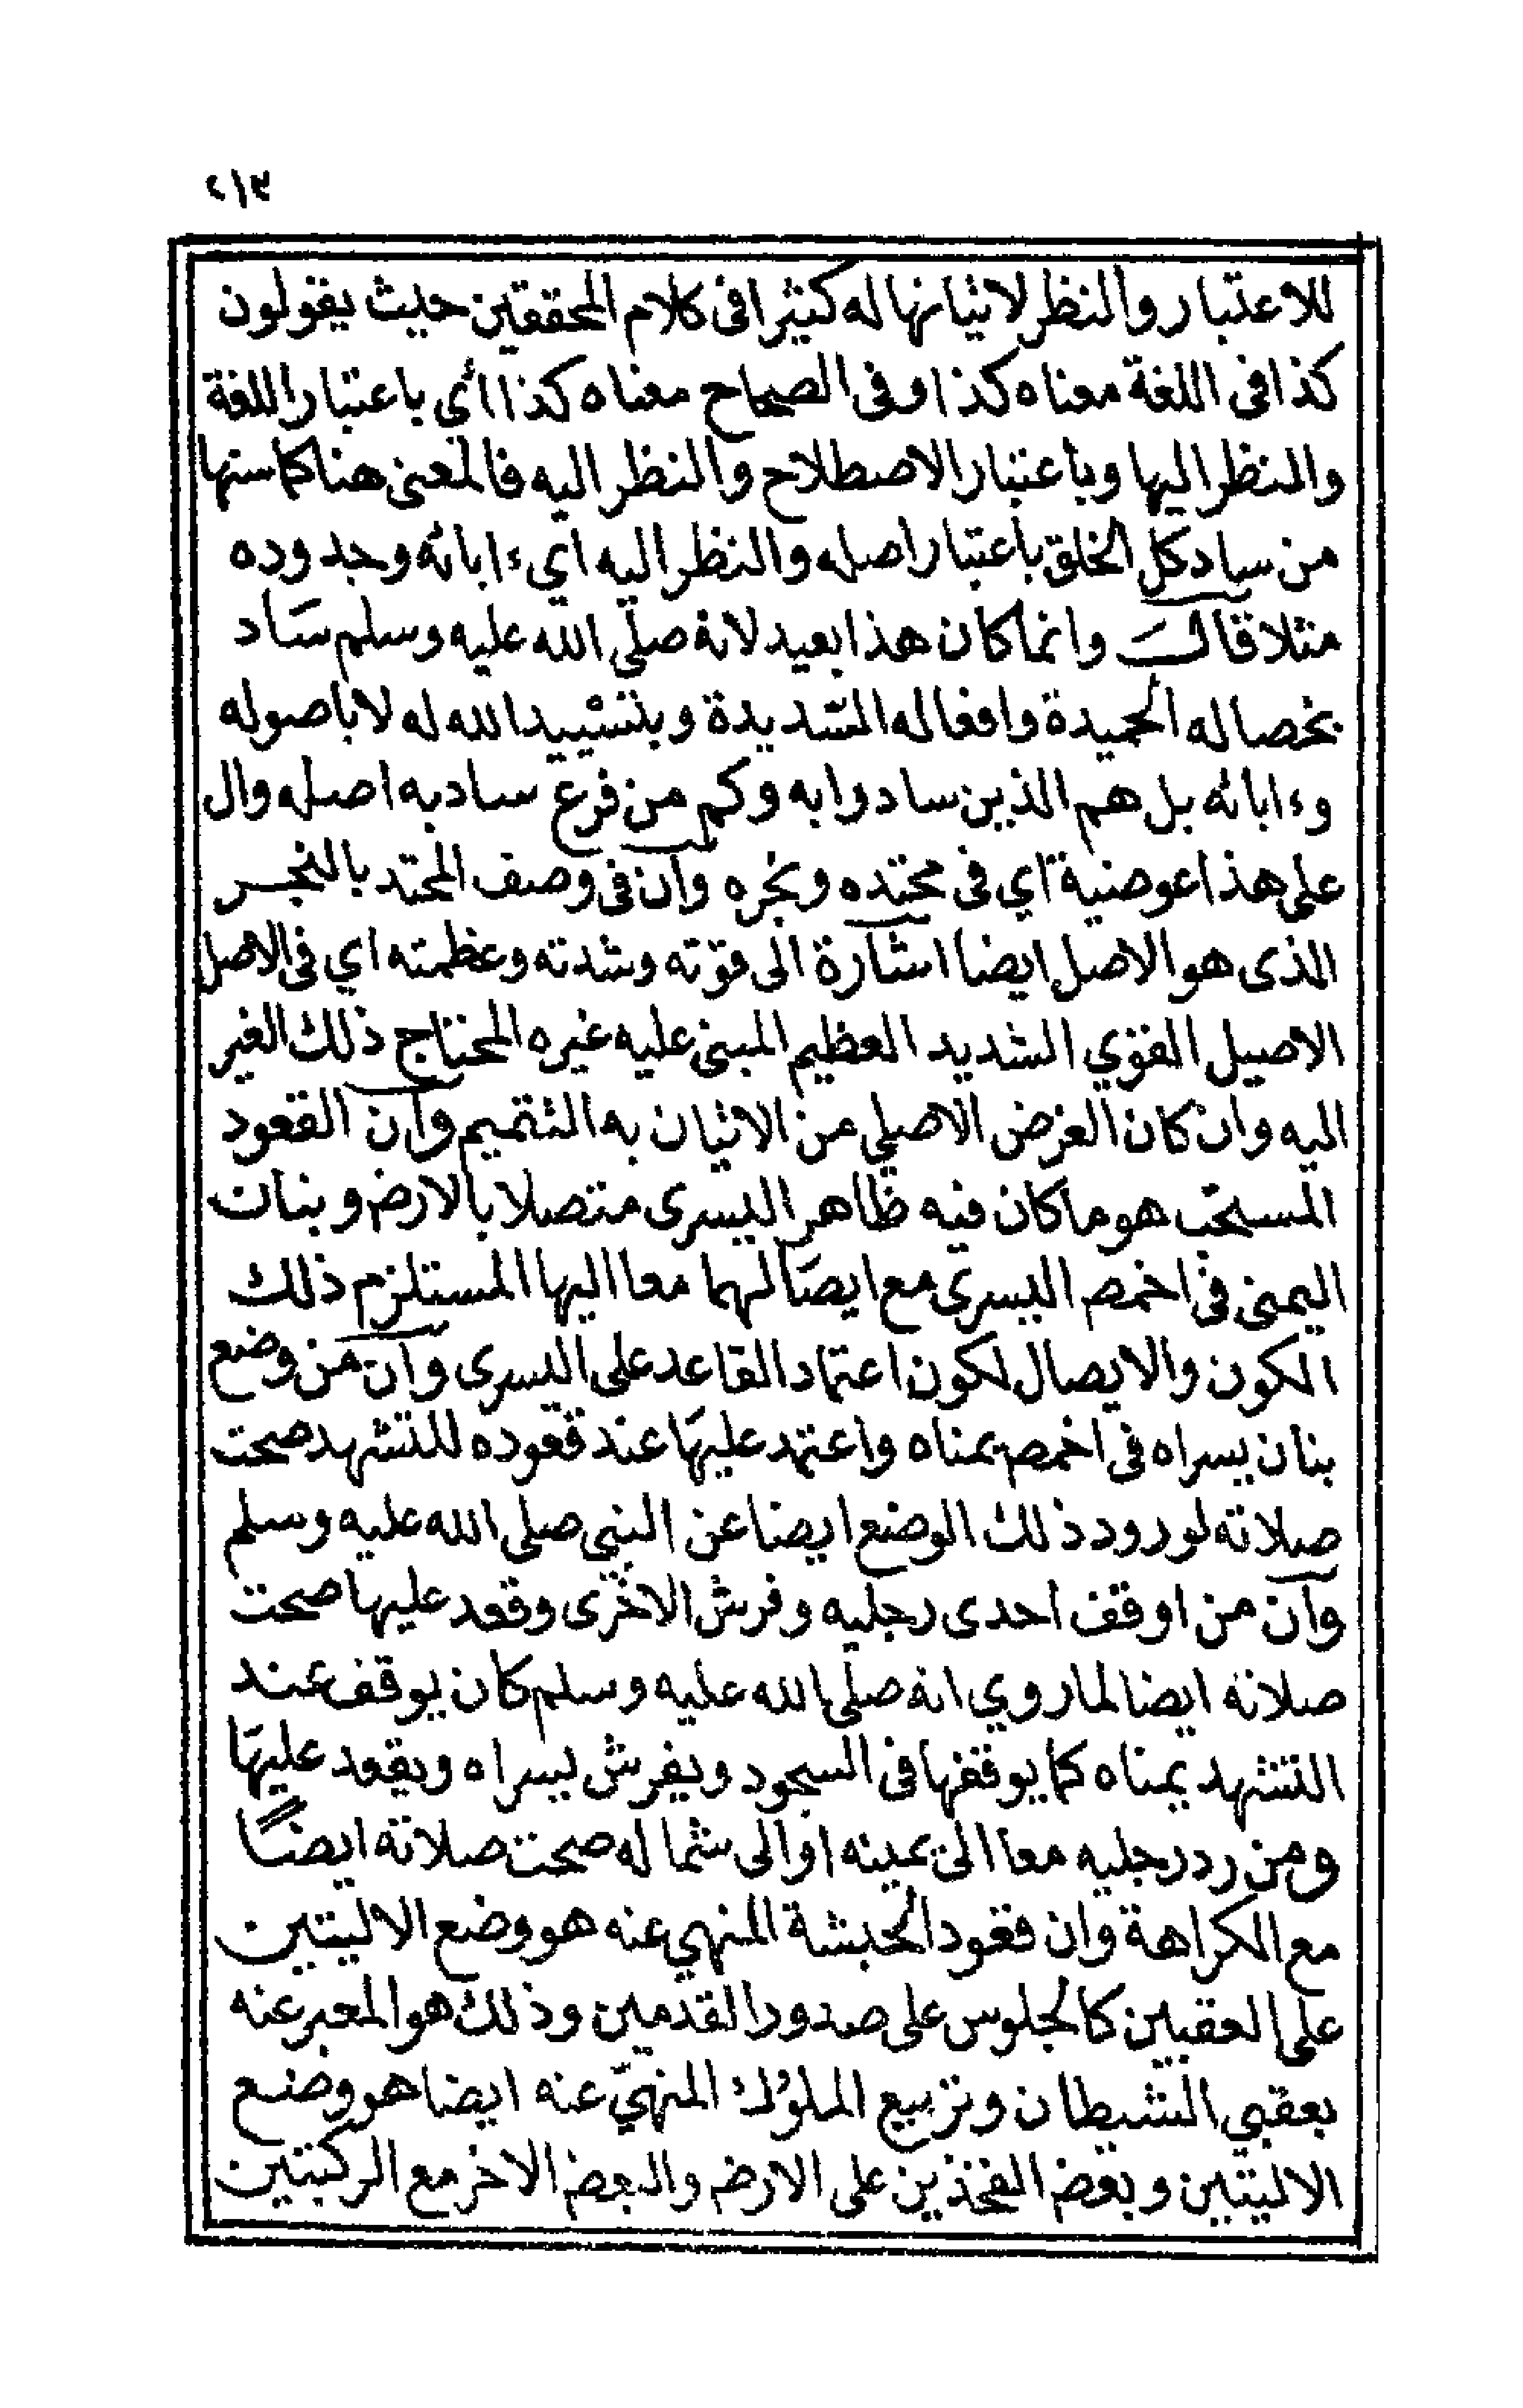 ٢١٣
للاعتبار والنظر لاتيانها له كثيرا فى كلام المحققين حيث يقولون
كذا فى اللغة معناه كذا وفى الصحاح معناه كذا اأى باعتبار اللغة
والنظر اليها وباعتبار الاصطلاح والنظر اليه فالمعنى هنا كاستها
من ساد كل الخلق باعتبار اصله والنظر اليه اي ءابائه وجدوده
مثلا قال وانما كان هذا بعيد لانه صلى الله عليه وسلم ساد
بخصاله الحميدة وافعاله الشديدة وبتشييد الله له لا باصوله
وءابائه بل هم الذين سادوا به وكم من فرع ساد به اصله وال
على هذا عوضية اي فى محتده ونجره وان فى وصف المحتد بالنجر
الذى هو الاصل ايضا اشارة الى قوّته وشدته وعظمته اي فى الاصل
الاصيل القوّي الشديد العظيم المبنى عليه غيره المحتاج ذلك الغير
اليه وان كان الغرض الاصلي من الاتيان به التتميم وان القعود
المستحّب هو ما كان فيه ظاهر اليسرى متصلا بالارض وبنان
اليمنى فى اخمص اليسرى مع ايصالهما معا اليها المستلزم ذلك
الكون والايصال لكون اعتماد القاعد على اليسرى وان من وضع
بنان يسراه فى اخمص يمناه واعتمد عليها عند قعوده للتشهد صحت
صلاته لورود ذلك الوضع ايضا عن النبي صلى الله عليه وسلم
وان من اوقف احدى رجليه وفرش الاخرى وقعد عليها صحت
صلاته ايضا لما روي انه صلى الله عليه وسلم كان يوقف عند
التشهد يمناه كما يوقفها فى السجود ويفرش يسراه ويقعد عليها
ومن رد رجليه معا الى يمينه اوالى شماله صحت صلاته ايضًا
مع الكراهة وان قعود الحبشة المنهي عنه هو وضع الاليتين
على العقبين كالجلوس على صدور القدمين وذلك هو المعبر عنه
بعقبي الشيطان وتربيع الملوك المنهيّ عنه ايضا هو وضع
الاليتين وبعض الفخذين على الارض والبعض الاخر مع الركبتين